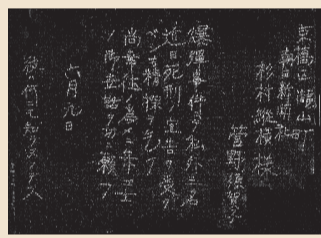 京橋区瀧山町
朝日新聞社
杉村縦横様
菅野須賀子
爆弾事件ニテ私外三名
近日死刑ノ宣告ヲ受ク
ベシ御精探ヲ乞フ
尚幸徳ノ為メニ弁ゴ士
ノ御世話ヲ切ニ願フ
六月九日
彼ハ何ニモ知ラヌノデス